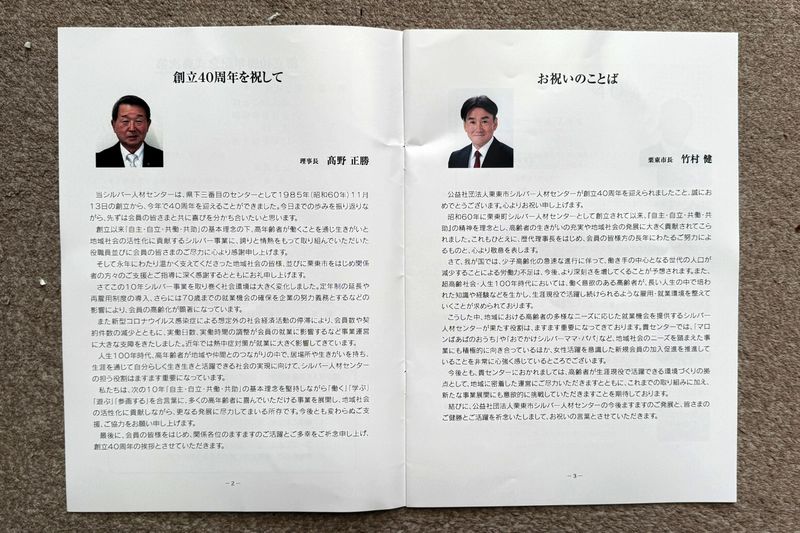 創立40周年を祝して
理事長 髙野 正勝
当シルバー人材センターは、県下三番目のセンターとして1985年(昭和60年)11月
13日の創立から、今年で40周年を迎えることができました。今日までの歩みを振り返りな
がら、先ずは会員の皆さまと共に喜びを分かち合いたいと思います。
創立以来「自主・自立・共働・共助」の基本理念の下、高年齢者が働くことを通じ生きがいと
地域社会の活性化に貢献するシルバー事業に、誇りと情熱をもって取り組んでいただいた
役職員並びに会員の皆さまのご尽力に心より感謝申し上げます。
そして永年にわたり温かく支えてくださった地域社会の皆様、並びに栗東市をはじめ関係
者の方々のご支援とご指導に深く感謝するとともにお礼申し上げます。
さてこの10年シルバー事業を取り巻く社会環境は大きく変化しました。定年制の延長や
再雇用制度の導入、さらには70歳までの就業機会の確保を企業の努力義務とするなどの
影響により、会員の高齢化が顕著になっています。
また新型コロナウイルス感染症による想定外の社会経済活動の停滞により、会員数や契
約件数の減少とともに、実働日数、実働時間の調整が会員の就業に影響するなど事業運営
に大きな支障をきたしました。近年では熱中症対策が就業に大きく影響してきています。
人生100年時代、高年齢者が地域や仲間とのつながりの中で、居場所や生きがいを持ち、
生涯を通じて自分らしく生き生きと活躍できる社会の実現に向けて、シルバー人材センター
の担う役割はますます重要になっています。
私たちは、次の10年「自主・自立・共働・共助」の基本理念を堅持しながら「働く」「学ぶ」
「遊ぶ」「参画する」を合言葉に、多くの高年齢者に喜んでいただける事業を展開し、地域社会
の活性化に貢献しながら、更なる発展に尽力してまいる所存です。今後とも変わらぬご支
援、ご協力をお願い申し上げます。
最後に、会員の皆様をはじめ、関係各位のますますのご活躍とご多幸をご祈念申し上げ、
創立40周年の挨拶とさせていただきます。
－2－
お祝いのことば
栗東市長 竹村 健
公益社団法人栗東市シルバー人材センターが創立40周年を迎えられましたこと、誠にお
めでとうございます。心よりお祝い申し上げます。
昭和60年に栗東町シルバー人材センターとして創立されて以来、『自主・自立・共働・共
助』の精神を理念とし、高年齢者の生きがいの充実や地域社会の発展に大きく貢献されてこ
られました。これもひとえに、歴代理事長をはじめ、会員の皆様方の長年にわたるご努力によ
るものと、心より敬意を表します。
さて、我が国では、少子高齢化の急速な進行に伴って、働き手の中心となる世代の人口が
減少することによる労働力不足は、今後、より深刻さを増してくることが予想されます。また、
超高齢社会・人生100年時代においては、働く意欲のある高齢者が、長い人生の中で培わ
れた知識や経験などを生かし、生涯現役で活躍し続けられるような雇用・就業環境を整えて
いくことが求められております。
こうした中、地域における高齢者の多様なニーズに応じた就業機会を提供するシルバー人
材センターが果たす役割は、ますます重要になってきております。貴センターでは、「マロ
ンばあばのおうち」や「おでかけシルバーママ・パパ」など、地域社会のニーズを踏まえた事
業にも積極的に向き合っているほか、女性活躍を意識した新規会員の加入促進を推進して
いることを非常に心強く感じているところでございます。
今後とも、貴センターにおかれましては、高齢者が生涯現役で活躍できる環境づくりの拠
点として、地域に密着した運営にご尽力いただきますとともに、これまでの取り組みに加え、
新たな事業展開にも意欲的に挑戦していただきますことを期待しております。
結びに、公益社団法人栗東市シルバー人材センターの今後ますますのご発展と、皆さまの
ご健勝とご活躍を祈念いたしまして、お祝いの言葉とさせていただきます。
－3－